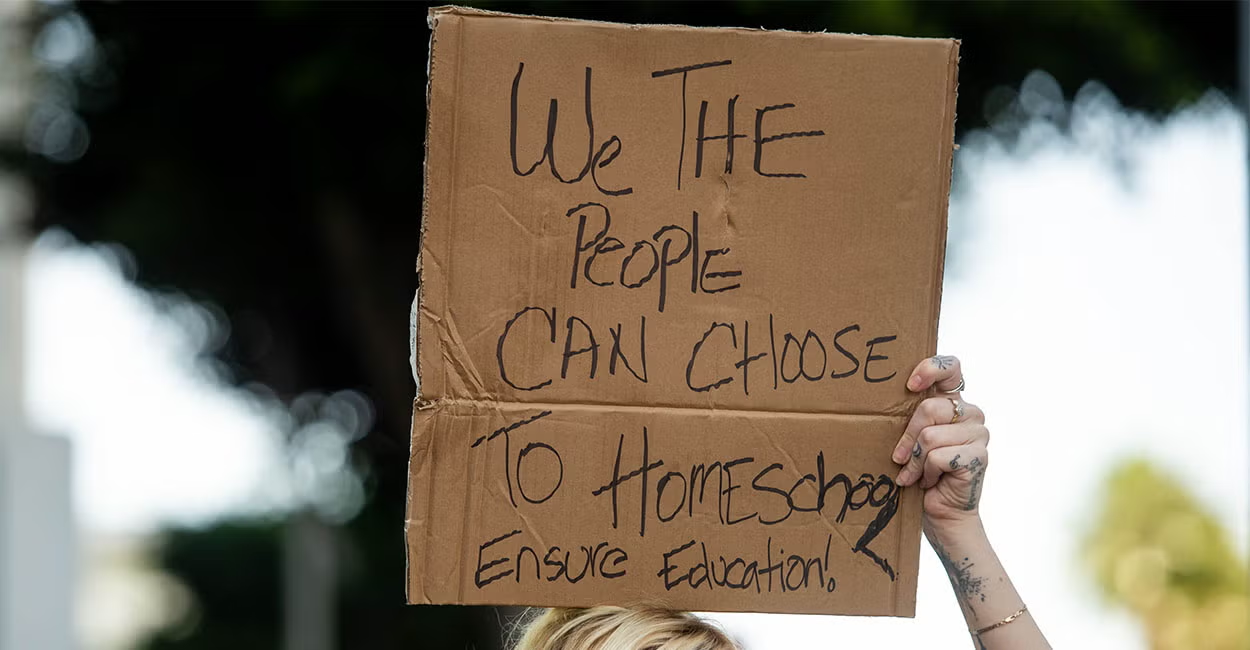 We THE
PeoplE
CAN CHOOSE
To HOMESchool
Ensure Education!